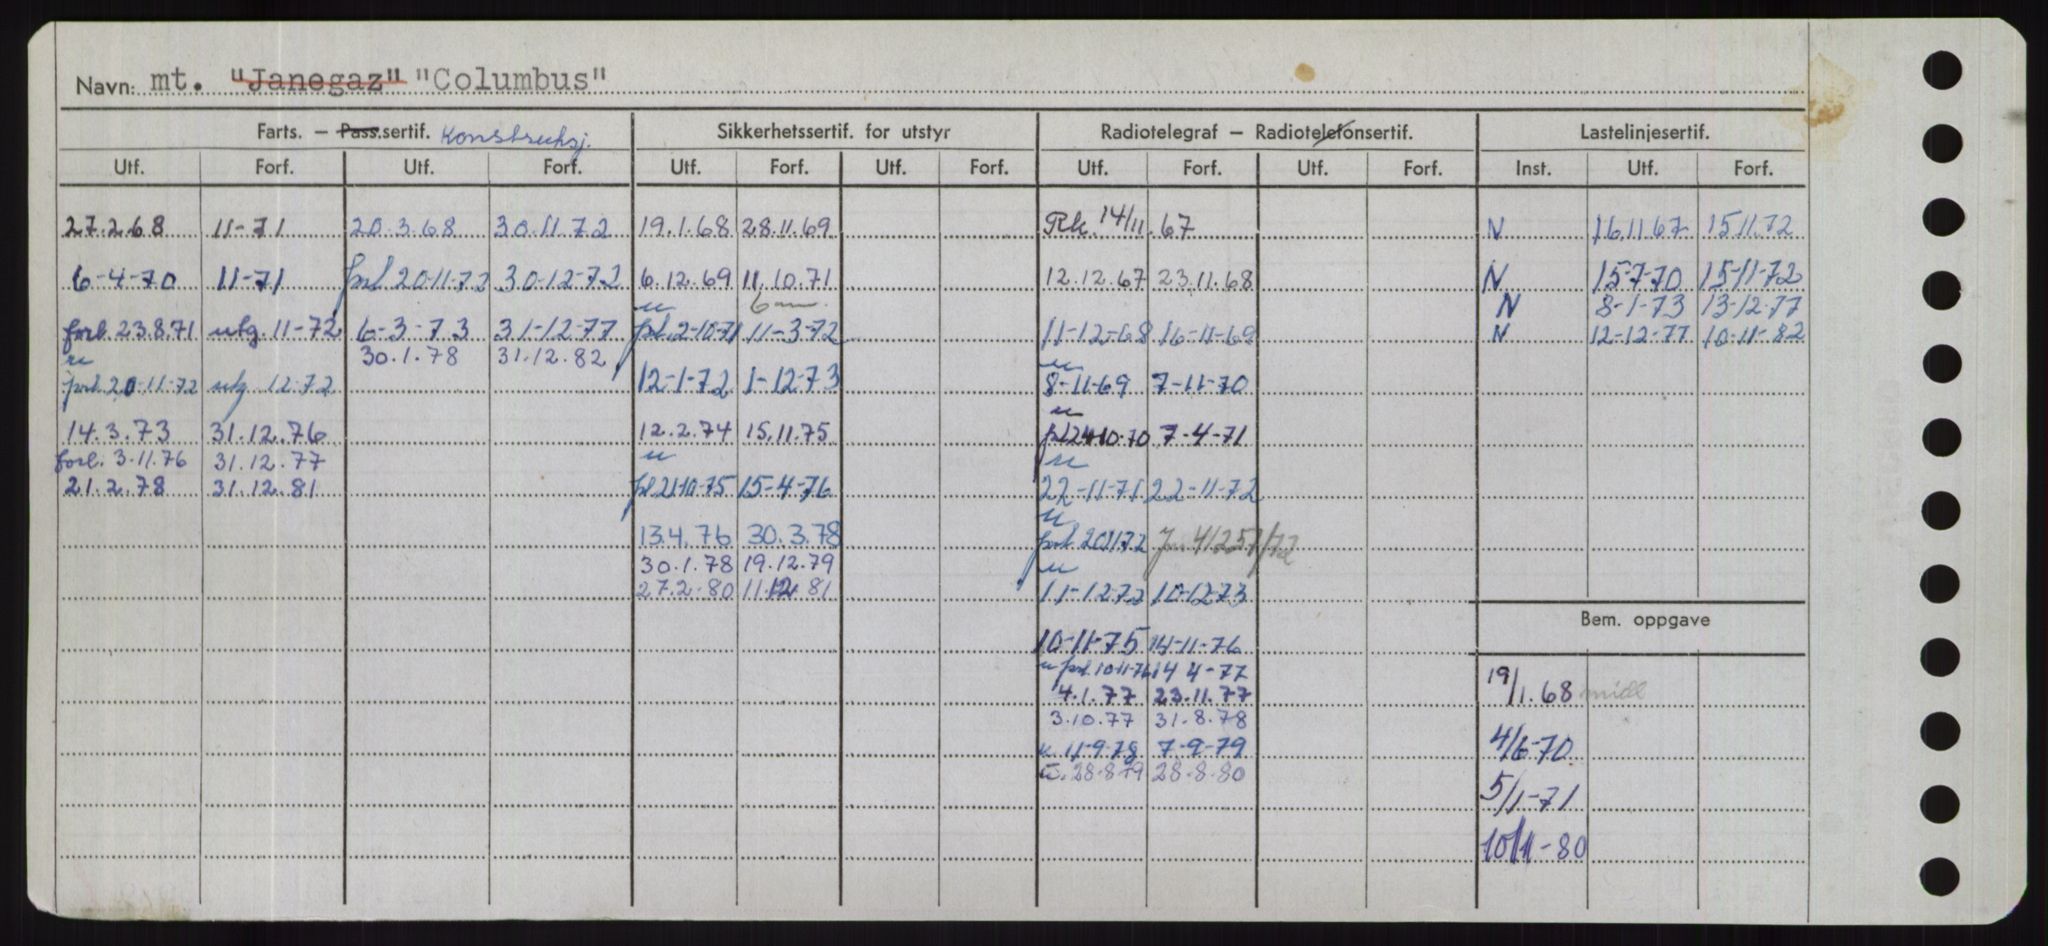 Navn: mt. "Janegaz" "Columbus"
Farts. — Pass.sertif. Konstruksj. Sikkerhetssertif. for utstyr Radiotelegraf — Radiotelefonsertif. Lastelinjesertif.
Utf. Forf. Utf. Forf. Utf. Forf. Utf. Forf. Utf. Forf. Utf. Forf. Inst. Utf. Forf.
27.2.68 11-71 20.3.68 30.11.72 19.1.68 28.11.69 Rk. 14/11.67 N 16.11.67 15.11.72
6-4-70 11-71 forl 20-11-72 30-12-72 6.12.69 11.10.71 12.12.67 23.11.68 N 15-7-70 15-11-72
u 6 mn. N 8-1-73 13-12-77
forl. 23.8.71 utg. 11-72 6-3-73 31-12-77 forl. 2-10-71 11-3-72 11-12-68 16-11-69 N 12-12-77 10-11-82
u 30.1.78 31.12.82 u
forl. 20-11-72 utg. 12-72 12-1-72 1-12-73 8-11-69 7-11-70
u
14.3.73 31.12.76 12.2.74 15.11.75 fl 24-10-70 7-4-71
forl. 3.11.76 31.12.77 u u
21.2.78 31.12.81 fl 21-10-75 15-4-76 22-11-71 22-11-72
u
13.4.76 30.3.78 forl 20.11.72 Jnr 41257/72
30.1.78 19.12.79 u
27.2.80 11.12.81 11-12-72 10-12-73
Bem. oppgave
10-11-75 14-11-76
u forl. 10-11-76 14-4-77
19/1.68 midl
4.1.77 23.11.77
3.10.77 31.8.78
u. 11-9-78 7-9-79 4/6-70
28-8-79 28-8-80
5/1-71
10/11-80